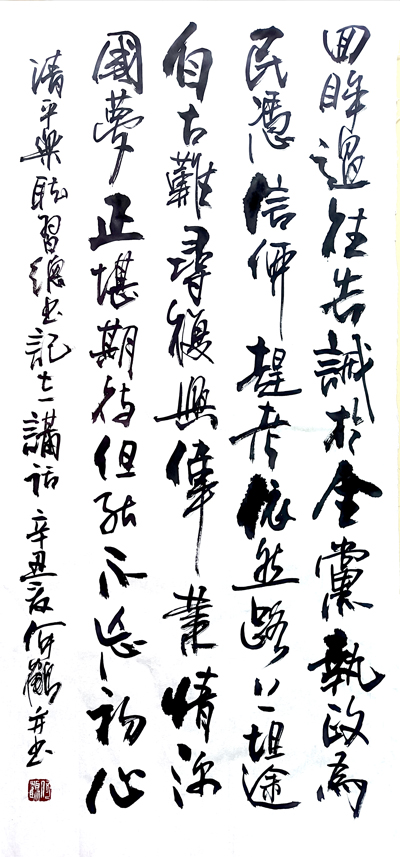 回眸過往告誡於全黨執政為
民憑信仰趕考依然路上坦途
自古難尋復興偉業情深
國夢正堪期待但能不忘初心
清平樂聆習總書記七一講話辛丑夏何鶴并書